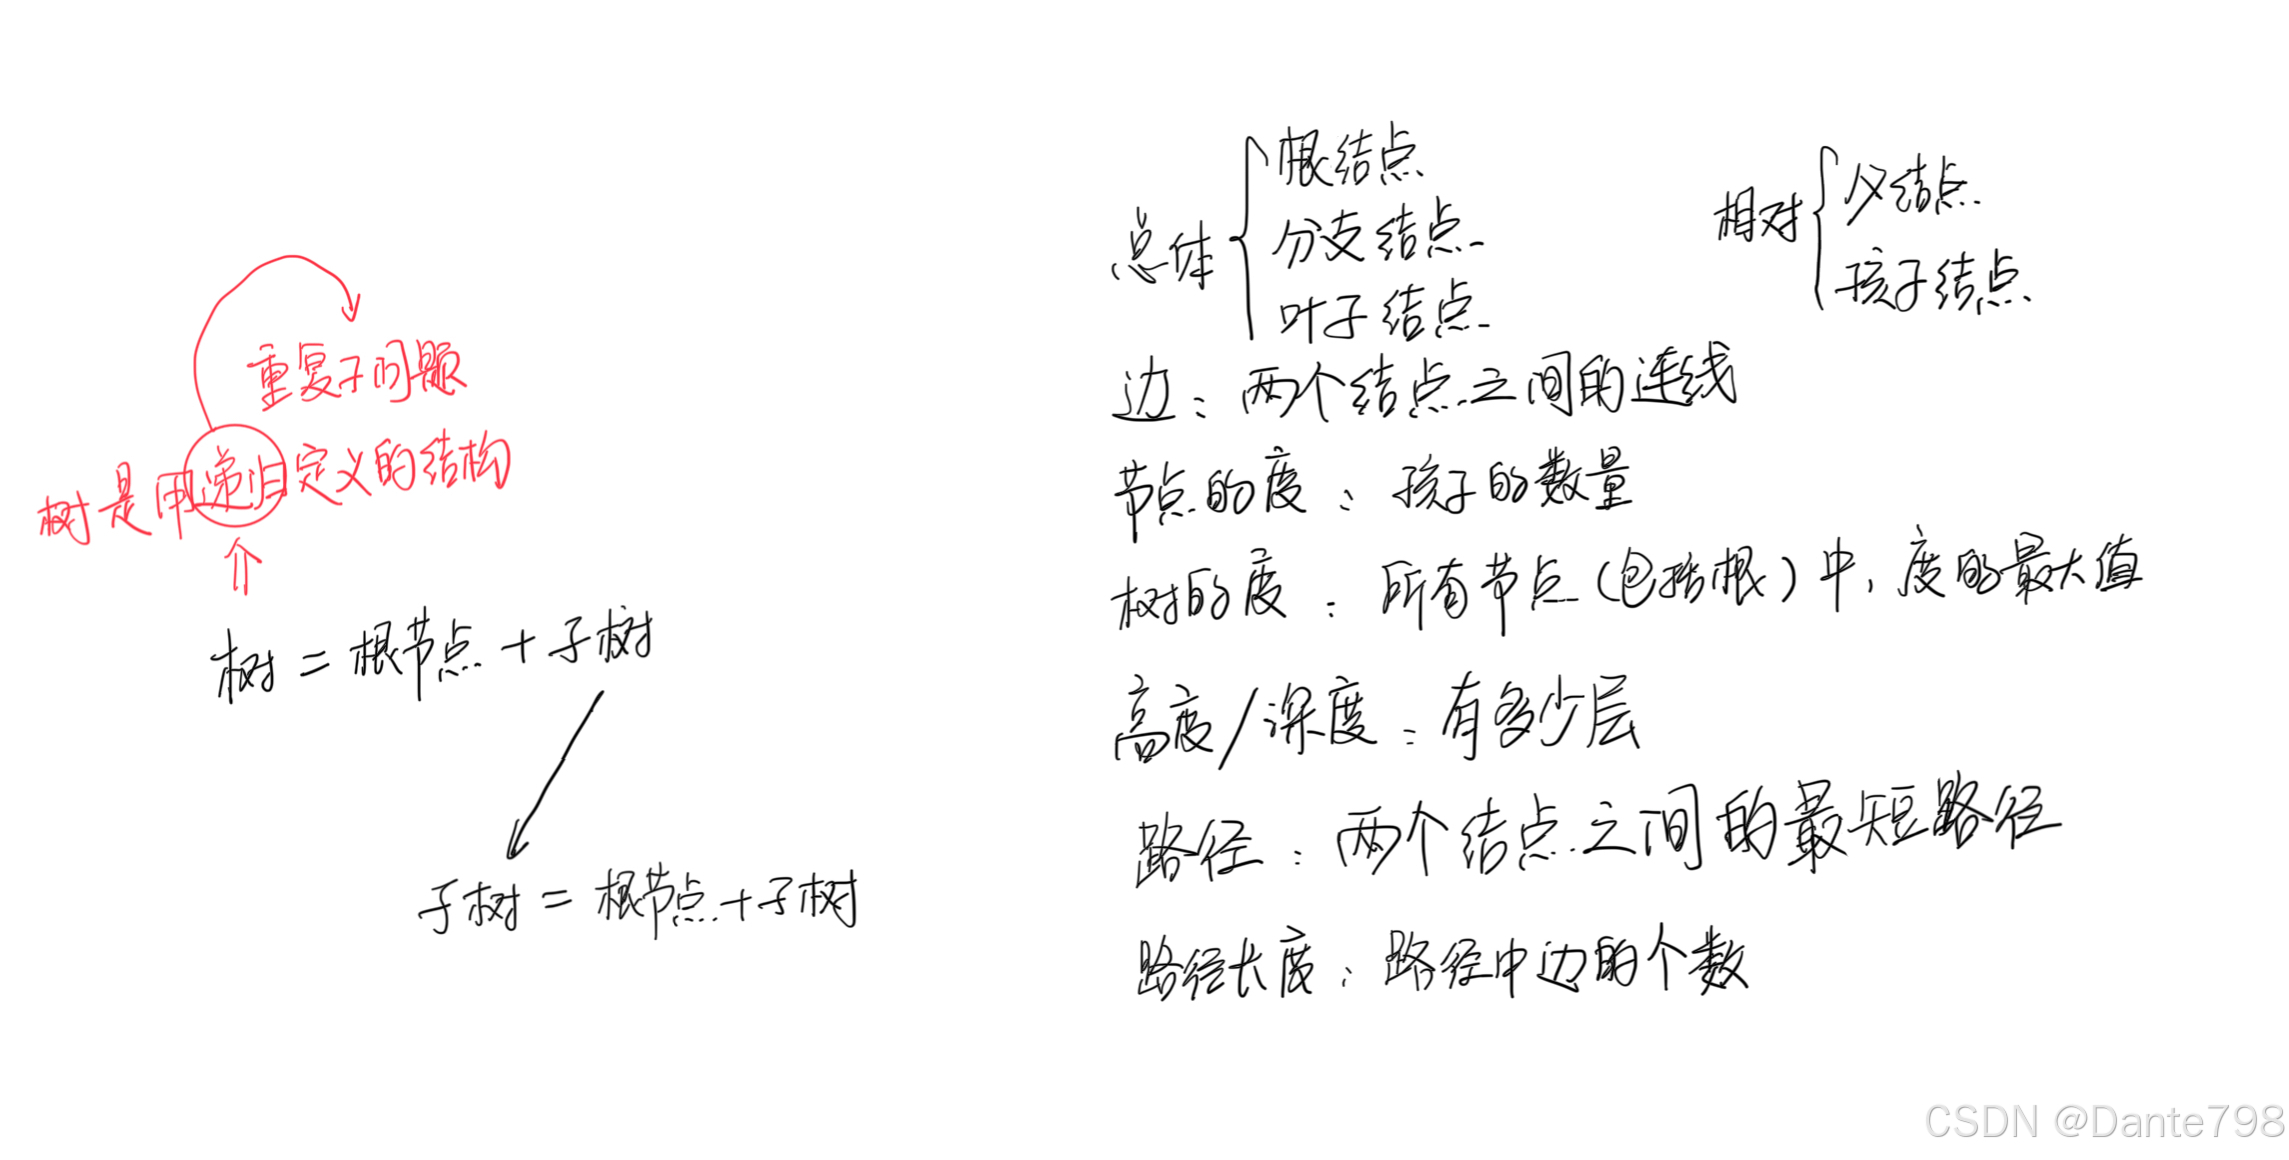 重复子问题
树是用递归定义的结构
树 = 根节点 + 子树
子树 = 根节点 + 子树
总体
根结点
分支结点
叶子结点
相对
父结点
孩子结点
边：两个结点之间的连线
节点的度：孩子的数量
树的度：所有节点（包括根）中，度的最大值
高度/深度：有多少层
路径：两个结点之间的最短路径
路径长度：路径中边的个数
CSDN @Dante798